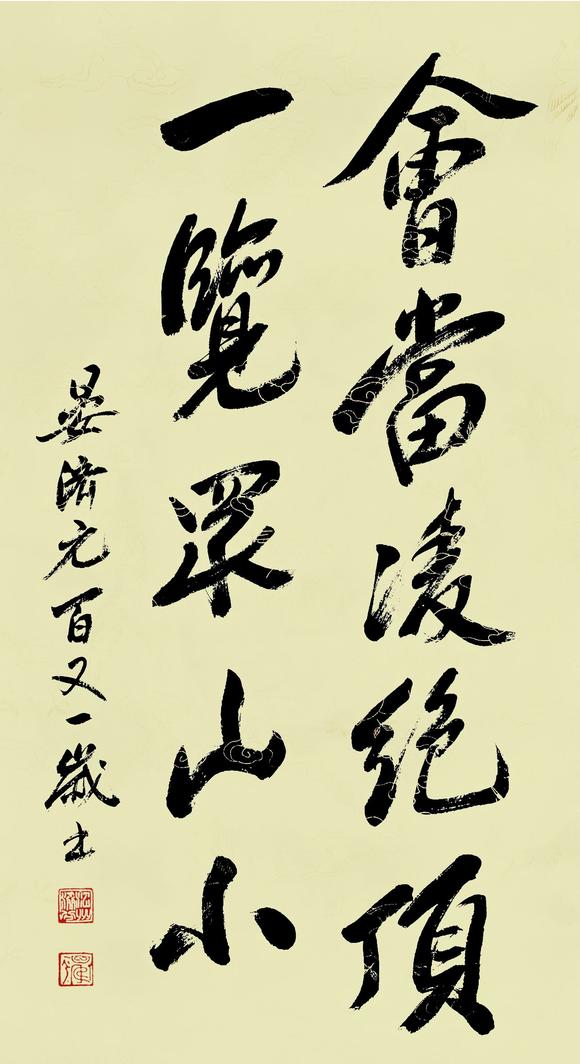 會當凌絕頂
一覽眾山小
晏濟元百又一歲書